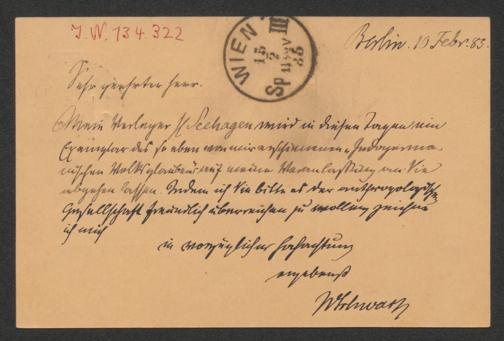 I.N. 134.322
WIEN
III
15
2
85
Berlin. 10 Febr. 85.
Sehr geehrter Herr.
Mein Verleger H Seehagen wird in diesen Tagen ein
Exemplar des so eben von mir erschienenen „Indogerma
nischen Volksglauben“ auf meine Veranlassung an Sie
abgehen lassen. Indem ich Sie bitte es der anthropologischen
Gesellschaft freundlich überreichen zu wollen zeichne
ich mich
in vorzüglicher Hochachtung
ergebenst
WSchwartz